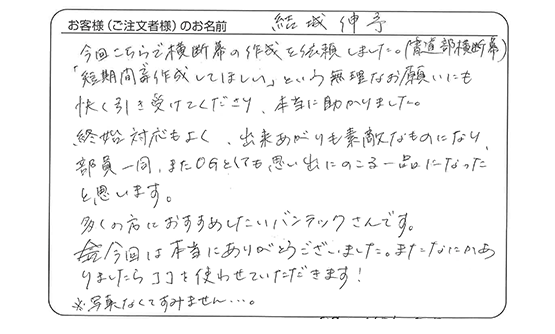 お客様(ご注文者様)のお名前 結城 伸子
今回こちらで横断幕の作成を依頼しました。(書道部横断幕)
「短期間で作成してほしい」という無理なお願いにも
快く引き受けてくださり、本当に助かりました。
終始対応もよく、出来あがりも素敵なものになり、
部員一同、またOGとしても思い出にのこる一品になった
と思います。
多くの方におすすめしたいバンテックさんです。
今回は本当にありがとうございました。またなにかあ
りましたらココを使わせていただきます!
※写真なくてすみません…。